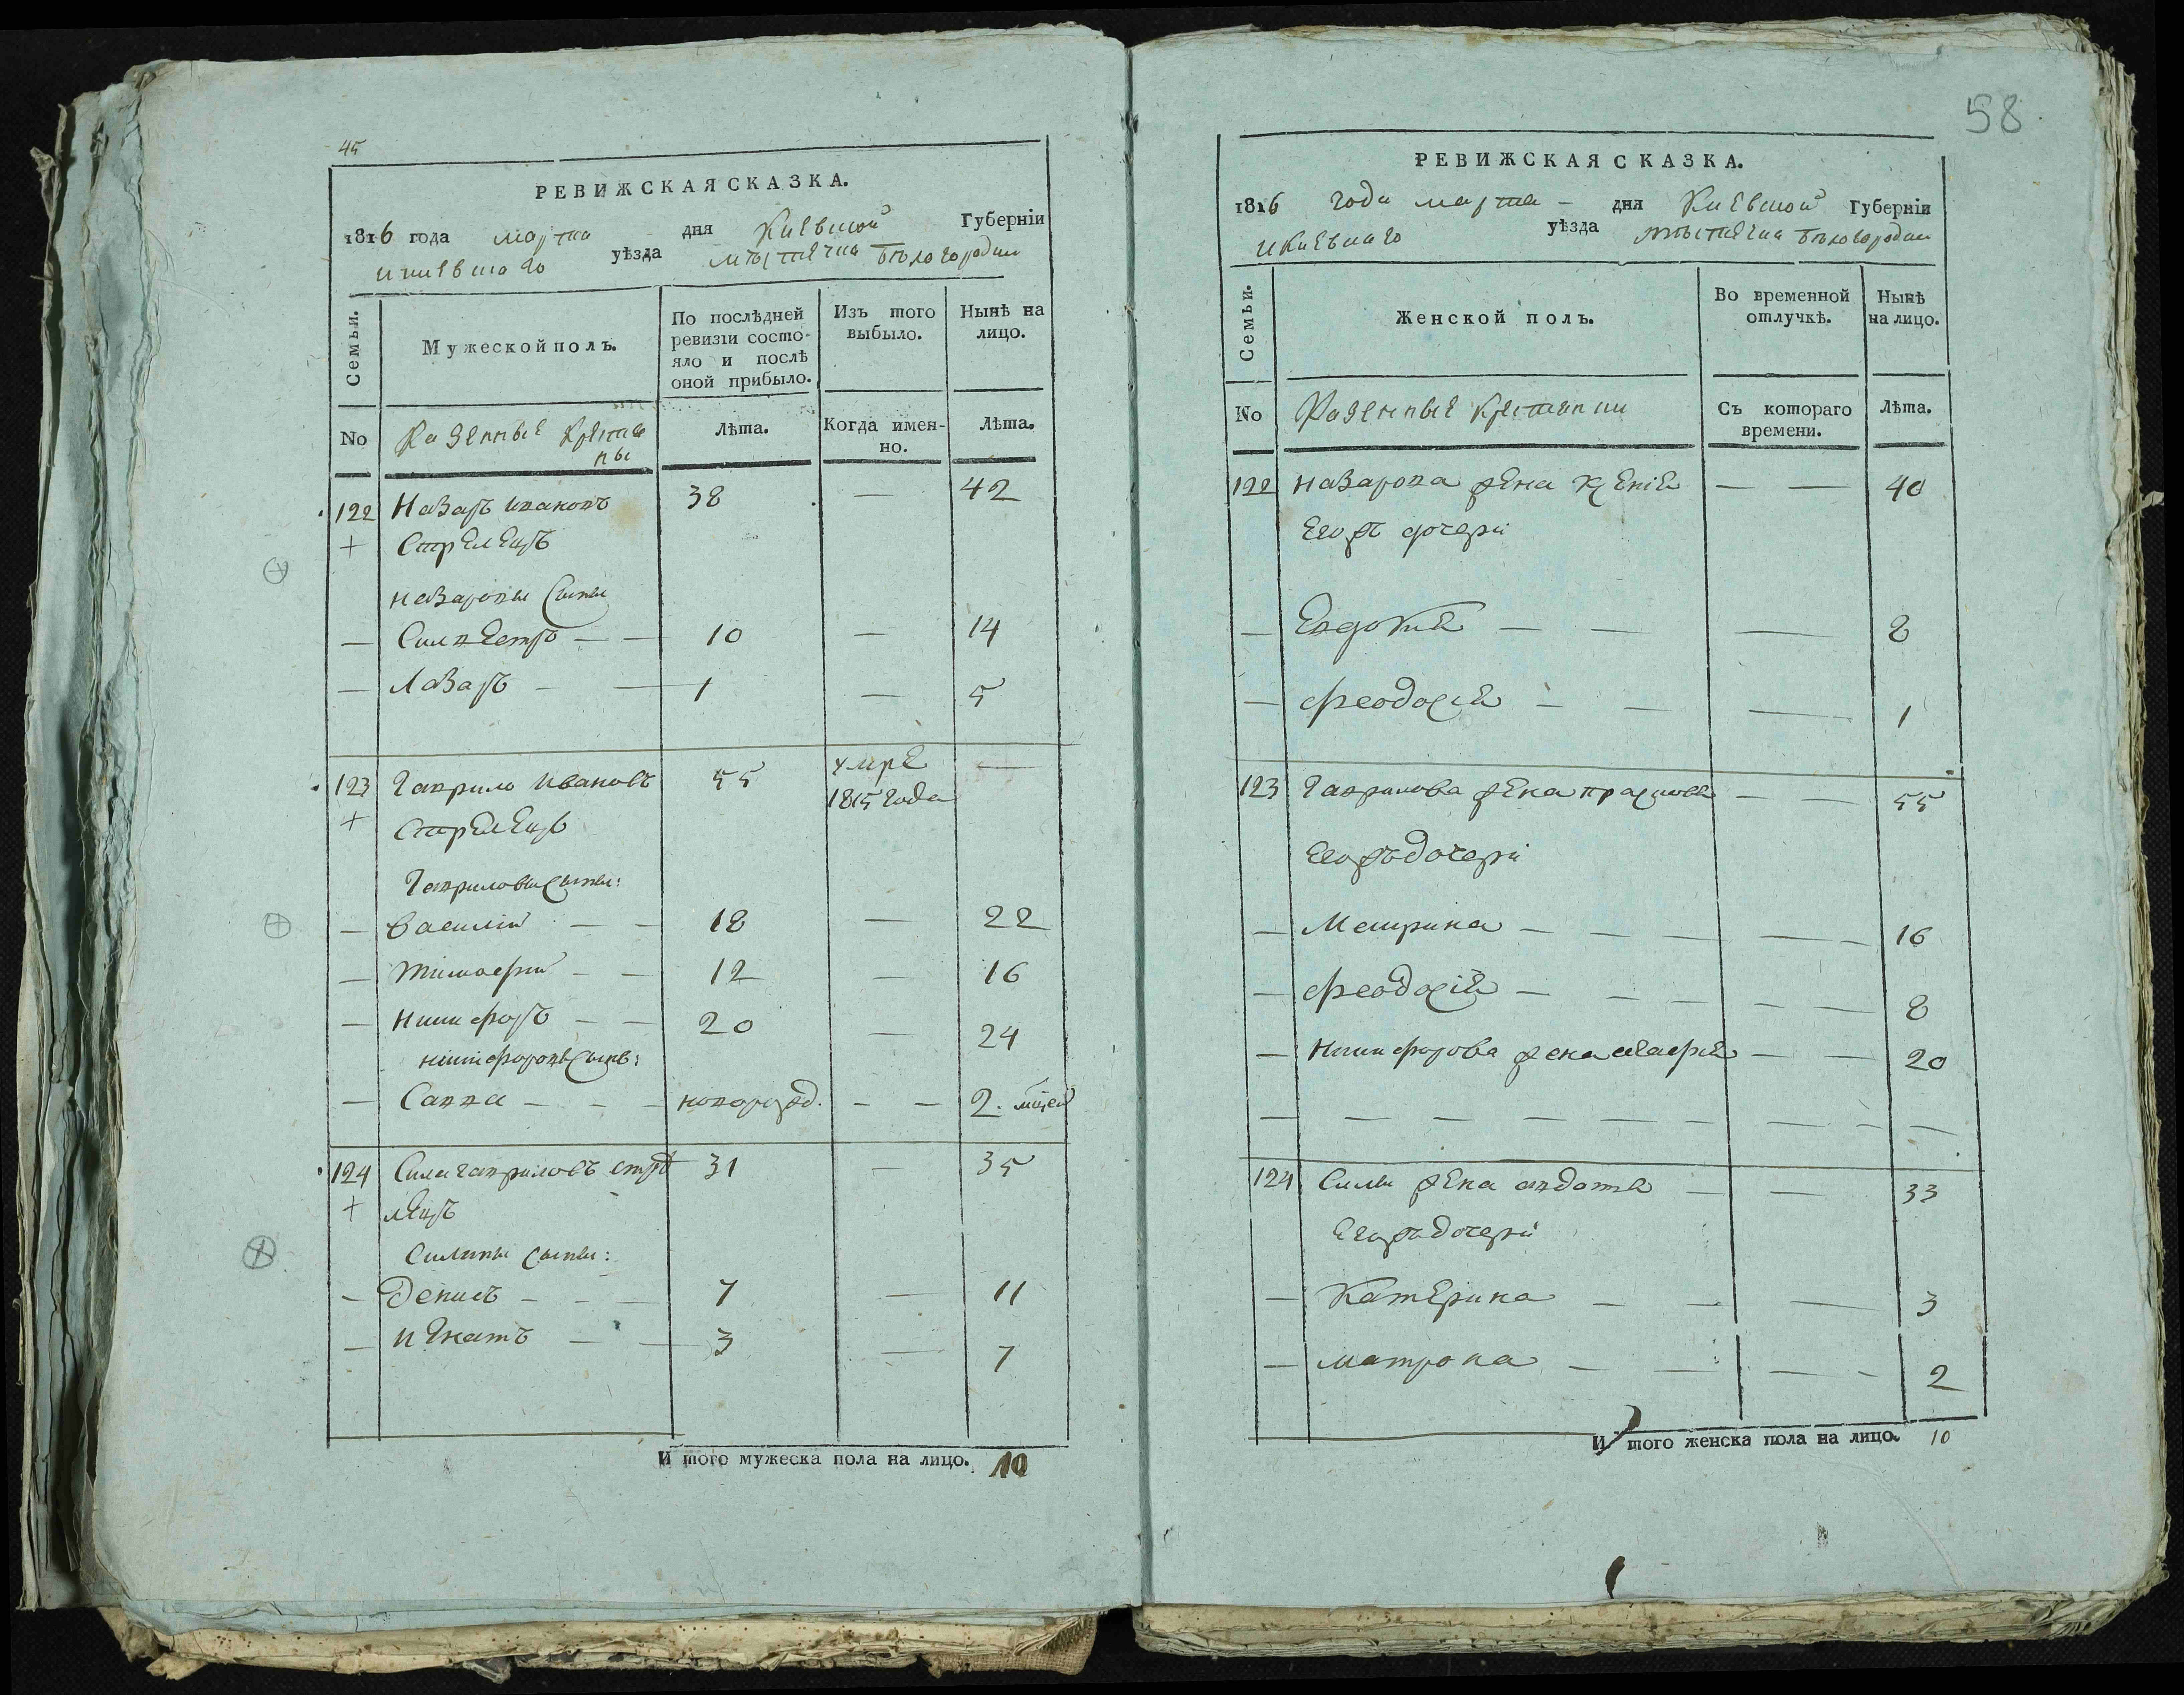 45
РЕВИЖСКАЯ СКАЗКА.
1816 года марта дня Киевской Губерніи
и киевского уѣзда мѣстечка Бѣлогородки
Семьи.
Мужеской полъ.
По послѣдней ревизіи состояло и послѣ оной прибыло.
Изъ того выбыло.
Нынѣ на лицо.
No
Казенные крестья
ны
Лѣта.
Когда именно.
Лѣта.
122 Назаръ Ивановъ 38 — 42
+ Стрелецъ
Назаровы сыны
— Силвестръ — — 10 — 14
— Лазаръ — — 1 — 5
123 Гаврило Ивановъ 55 умре —
+ Стрелецъ 1815 года
Гавриловы сыны:
— Василій — — 18 — 22
— Тимофий — — 12 — 16
— Никифоръ — — 20 — 24
Никифоровъ сынъ:
— Савва — — — новорожд. — — 2. мцей
124 Сила Гавриловъ стре 31 — 35
+ лецъ
Силины сыны:
— Денисъ — — — 7 — 11
— Игнатъ — — 3 — 7
И того мужеска пола на лицо. 10
58
РЕВИЖСКАЯ СКАЗКА.
1816 года марта — дня Киевской Губерніи
и Киевскаго уѣзда мѣстечка Бѣлогородки
Семьи.
Женской полъ.
Во временной отлучкѣ.
Нынѣ на лицо.
No
Казенные крестянки
Съ котораго времени.
Лѣта.
122 Назарова жена Ксения — — 40
Егожъ дочери
— Евдокия — — — 8
— Феодосия — — — 1
123 Гаврилова жена Прасковя — — 55
Егожъ дочери
— Маѵрина — — — — — 16
— Феодосія — — — — — 8
— Никифорова жена — — 20
— — — — — — — — —
124 Силы жена — — 33
Егожъ дочери
— Катерина — — — 3
— матрона — — — — 2
И того женска пола на лицо. 10